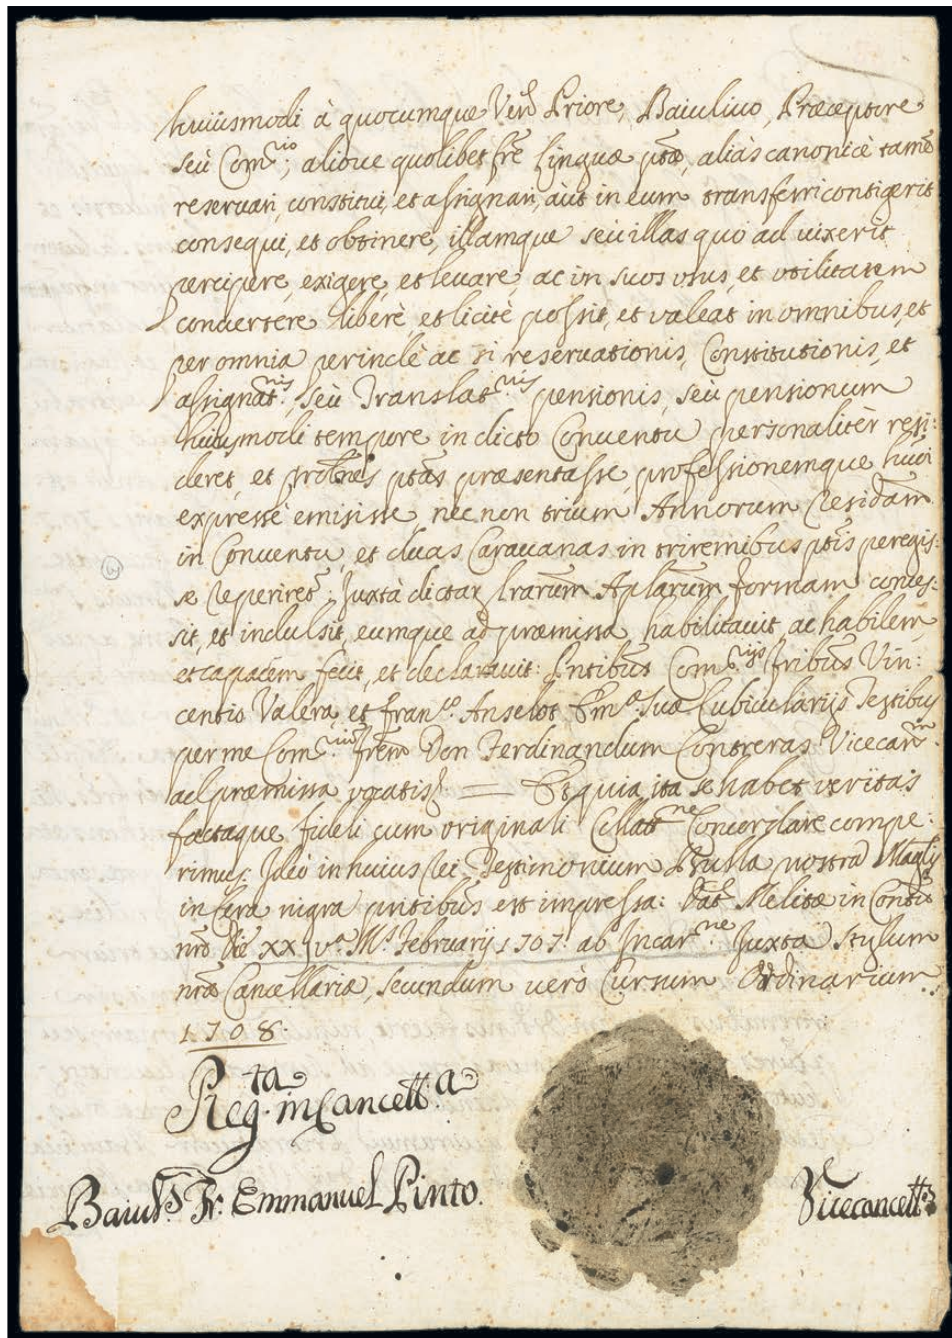 huiusmodi à quocumque Ven̄d Priore, Baiulivo, Præceptore
seù Com.rio; aliove quolibet fr̄e Linguæ ptæ, aliàs canonicè tamē
reservari, constitui, et assignari, aut in eum transferri contigerit
consequi, et obtinere, illamque seu illas quo ad vixerit
percipere, exigere, et levare, ac in suos usus, et utilitatem
convertere liberè, et licitè possit, et valeat in omnibus, et
per omnia perinde ac si reservationis, Constitutionis, et
assignat.nis, seù Translat.nis pensionis, seù pensionum
huiusmodi tempore in dicto Conventu personalitèr resi:
deret, et prōbnes ptas præsentasse, professionemque huōi
expressè emisisse, nec non trium Annorum Residām
in Conventu, et duas Caravanas in triremibus ptis peregis:
se reperiret: Juxtà dictar. lrarum Aplarum formam conces:
sit, et indulsit, eumque ad præmissa habilitavit, ac habilem,
et capacem fecit, et declaravit: Pntibus Com.rijs fribus Vin:
centio Valera, et Fran.co Anselot Em.æ Suæ Cubicularijs Testibus
per me Com.rium frem Don Ferdinandum Contreras Vicecan.m
ad præmissa vocatis = Et quia ita se habet veritas
factaque fideli cum originali Collat.ne Concordare compe:
rimus. Ideò in huius rei Testimonium Bulla nostra Mag.lis
in cera nigra pntibus est impressa: Dat. Melitæ in Contu
nr̄o Die XXIV.a M.s February 1707. ab Incar.ne Juxta Stylum
nræ Cancellariæ, secundum verò Cursum Ordinarium
1708.
Reg.ta in Cancell.a
Baiul.s Fr. Emmanuel Pinto.
Vicecancell.s